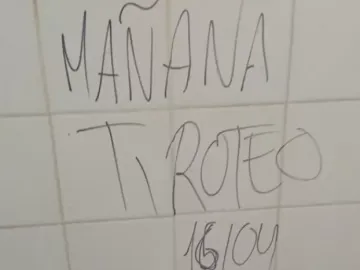 MAÑANA
TIROTEO
16/04